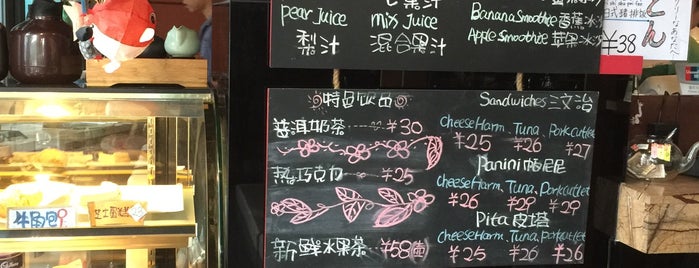 pear Juice
梨汁
mix Juice
混合果汁
Banana Smoothie 香蕉冰沙
Apple Smoothie 苹果冰沙
とん
¥38
特色饮品
普洱奶茶 ---- ¥30
热巧克力 ---- ¥25
新鲜水果茶 --- ¥58(壶)
Sandwiches 三文治
CheeseHarm. Tuna. Porkcutlet
¥25 ¥26 ¥27
Panini 帕尼尼
CheeseHarm. Tuna. Porkcutlet
¥26 ¥29 ¥29
Pita 皮塔
CheeseHarm. Tuna. Porkcutlet
¥25 ¥26 ¥26
牛角包